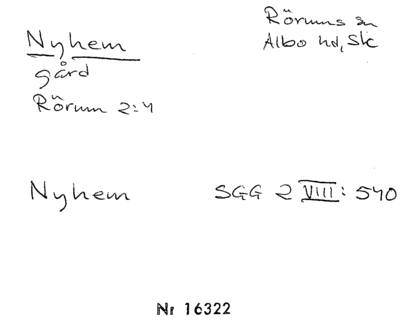 Nyhem
gård
Rörum 2:4
Rörums sn
Albo hd, Sk
Nyhem SGG 2 VIII: 540
Nr 16322